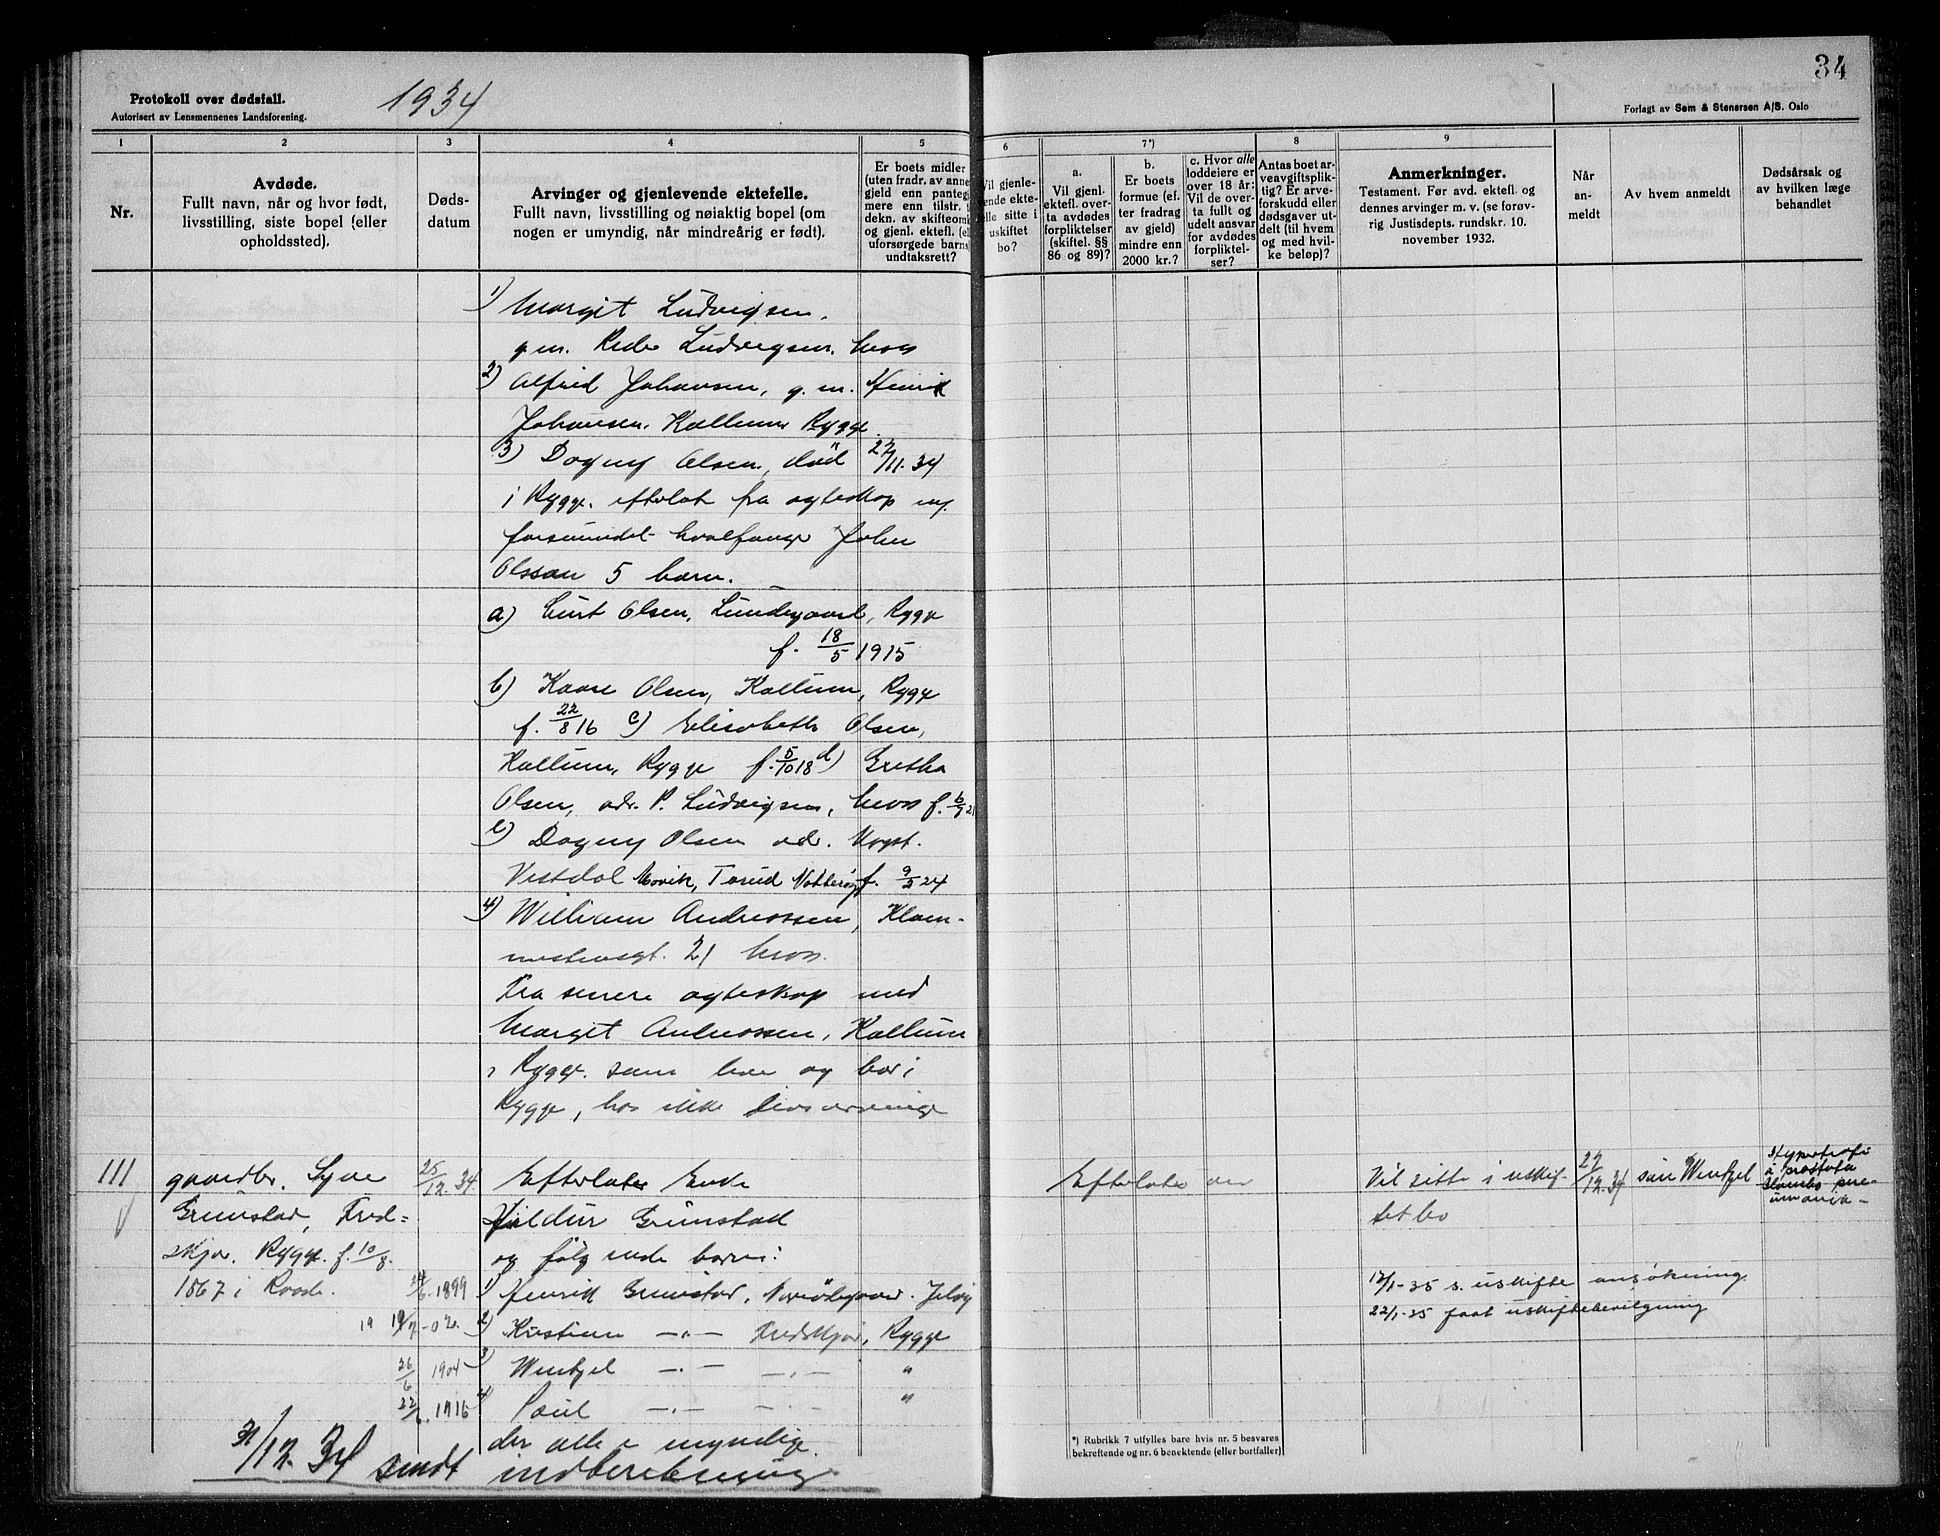 34
Protokoll over dødsfall.
Autorisert av Lensmennenes Landsforening.
1934
Forlagt av Sem & Stenersen A/S. Oslo
1
2
3
4
5
6
7*)
8
9
Nr.
Avdøde.
Fullt navn, når og hvor født,
livsstilling, siste bopel (eller
opholdssted).
Døds-
datum
Arvinger og gjenlevende ektefelle.
Fullt navn, livsstilling og nøiaktig bopel (om
nogen er umyndig, når mindreårig er født).
Er boets midler
(uten fradr. av anne
gjeld enn panteg
mere enn tilstr. t
dekn. av skifteomk
og gjenl. ektefl. (el
uforsørgede barns
undtaksrett?
Vil gjenle-
ende ekte-
elle sitte i
uskiftet
bo?
a.
Vil gjenl.
ektefl. over-
ta avdødes
forpliktelser
(skiftel. §§
86 og 89)?
b.
Er boets
formue (ef-
ter fradrag
av gjeld)
mindre enn
2000 kr.?
c. Hvor alle
loddeiere er
over 18 år:
Vil de over-
ta fullt og
udelt ansvar
for avdødes
forpliktel-
ser?
Antas boet ar-
veavgiftsplik-
tig? Er arve-
forskudd eller
dødsgaver ut-
delt (til hvem
og med hvil-
ke beløp)?
Anmerkninger.
Testament. Før avd. ektefl. og
dennes arvinger m. v. (se forøv-
rig Justisdepts. rundskr. 10.
november 1932.
Når
an-
meldt
Av hvem anmeldt
Dødsårsak og
av hvilken læge
behandlet
1) Margit Ludvigsen,
g.m. Peder Ludvigsen, Moss
2) Alfred Johansen, g.m. Henrik
Johansen, Kallum Rygge
3) Dagny Olsen, død 22/11.34
i Rygge. efterlot fra ægteskap m/
forsvundet hvalfanger John
Olssøn 5 barn.
a) Curt Olsen, Lundegaard, Rygge
f. 18/5 1915
b) Kaare Olsen, Kallum, Rygge
f. 22/8 16 c) Elisabeth Olsen,
Kallum, Rygge f. 5/10 18 d) Gretha
Olsen, adr. P. Ludvigsen, Moss f. 6/9 21
e) Dagny Olsen adr.
Vestdal Torød Nøtterøy f. 9/2 24
4) William Andreassen,
21 Moss.
Fra senere ægteskap med
Margit Andreassen, Kallum
i Rygge. som lever og bor i
Rygge, har ikke livsarvinge
111
gaardbr. Syver
Grimstad, Fred-
skjær. Rygge. f. 10/8.
1867 i Raade.
25/12.34
Efterlater Enke
Hildur Grimstad
og følgende barn:
24/6.1899 1) Henrik Grimstad, Jeløy
19 19/7-02. 2) Kristian —"— Fredskjær, Rygge
26/6 1904 3) Wentzel —"— —"— "
22/6.1916 4) Paul —"— —"— "
der alle er myndige.
31/12.34 sendt indberetning
Efterlater en
Vil sitte i uskif-
tet bo
12/1-35 s. uskifte ansøkning
22/1-35 faat uskiftebevilgning
27/12.34
søn Wentzel
Hypertrofi
a prostata
pne-
umonia -
*) Rubrikk 7 utfylles bare hvis nr. 5 besvares
bekreftende og nr. 6 benektende (eller bortfaller)